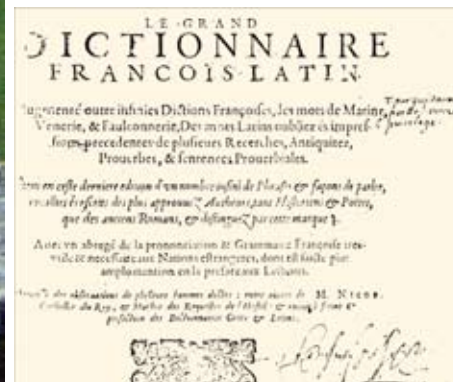 LE GRAND
DICTIONNAIRE
FRANCOIS-LATIN.
Augmenté outre infinies Dictions Françoises, les mots de Marine,
Venerie, & Faulconnerie, Des mots Latins oubliez és impres-
sions precedentes de plusieurs Recerches, Antiquitez,
Prouerbes, & sentences Prouerbiales.
en ceste derniere edition d'vn nombre infini de Phrases & façons de parler,
des plus approuuez Autheurs, tant Historiens & Poetes,
que des anciens Romans, & distinguez par ceste marque
Auec vn abregé de la prononciation & Grammaire Françoise
& necessaire aux Nations estrangeres, dont est faicte plus
en la preface aux Lecteurs.
des obseruations de plusieurs hommes doctes : entre autres de M. NICOT
Conseiller du Roy, & Maistre des Requestes de l'Hostel
des Dictionnaires Grecs & Latins.